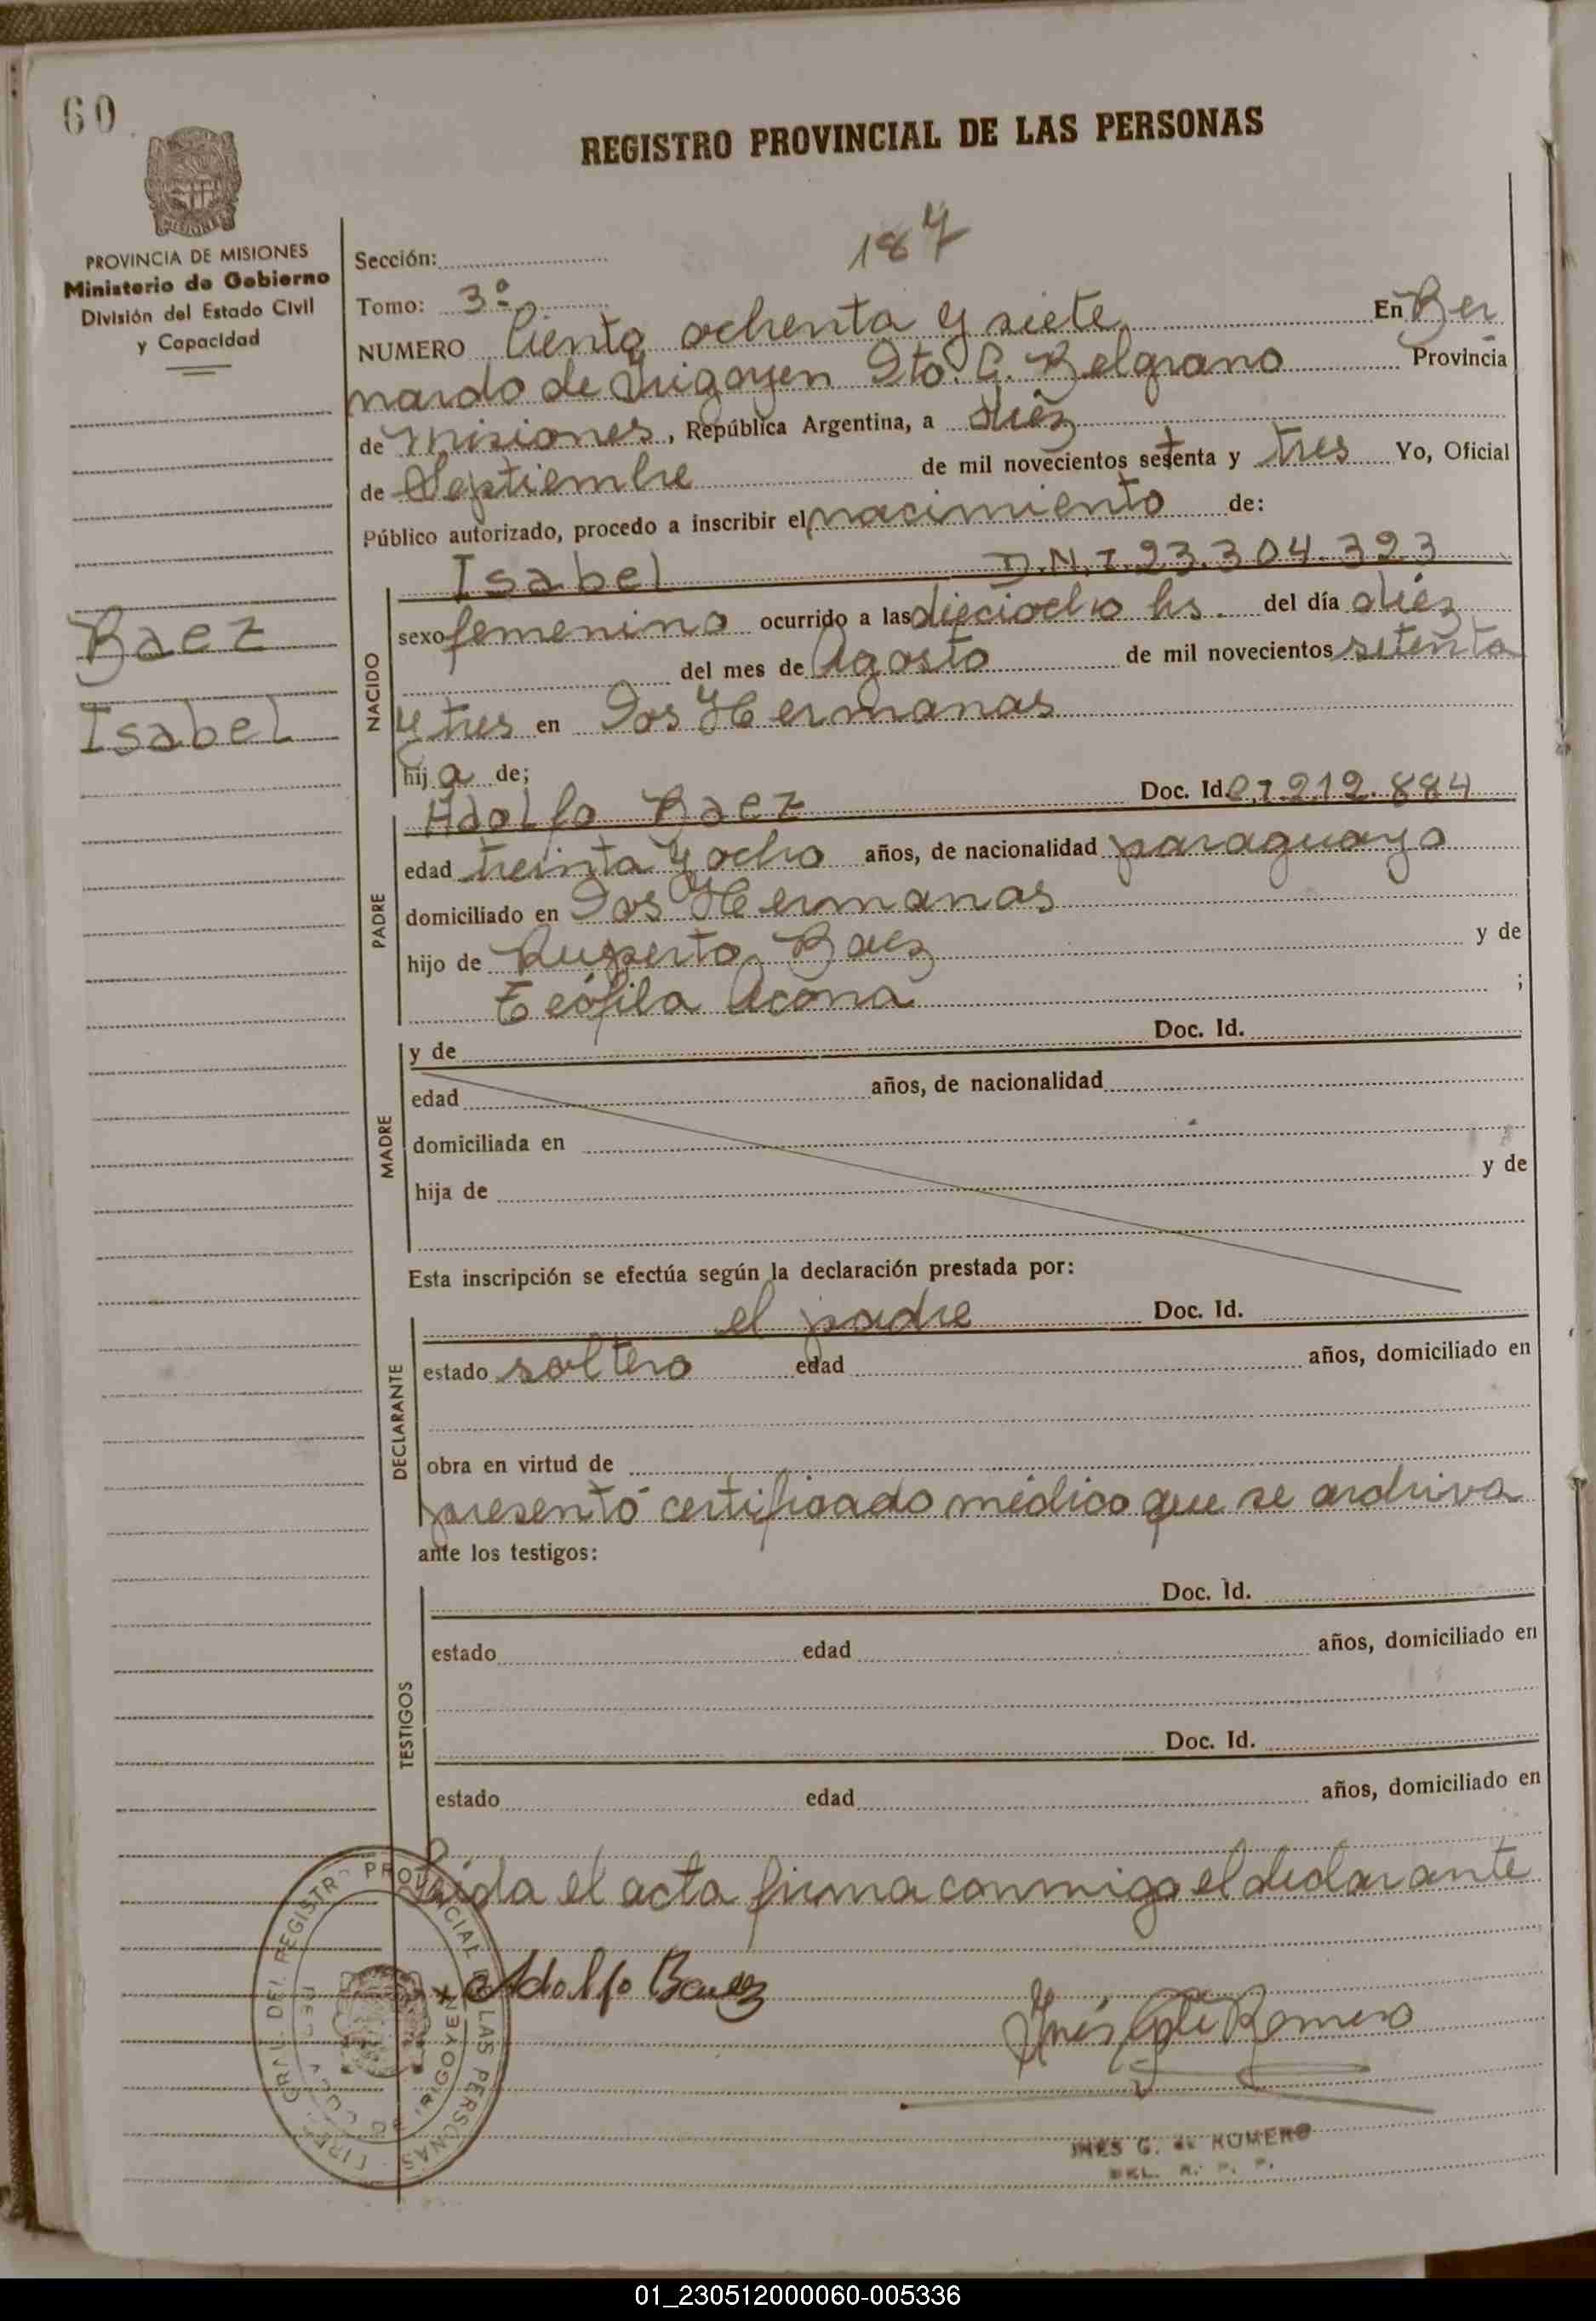 60
REGISTRO PROVINCIAL DE LAS PERSONAS
MISIONES
PROVINCIA DE MISIONES
Ministerio de Gobierno
División del Estado Civil
y Capacidad
187
Sección:
Tomo: 3º
NUMERO Ciento ochenta y siete En Ber
nardo de Irigoyen Dto. G. Belgrano Provincia
de Misiones, República Argentina, a diéz
de Septiembre de mil novecientos setenta y tres Yo, Oficial
Público autorizado, procedo a inscribir el nacimiento de:
Baez
Isabel
NACIDO
Isabel D.N.I. 23.304.323
sexo femenino ocurrido a las dieciocho hs. del día diéz
del mes de Agosto de mil novecientos setenta
y tres en Dos Hermanas
hija de;
PADRE
Adolfo Baez Doc. Id. C.I 212.884
edad treinta y ocho años, de nacionalidad paraguayo
domiciliado en Dos Hermanas
hijo de Ruperto Baez y de
Teófila Acona ;
MADRE
y de Doc. Id.
edad años, de nacionalidad
domiciliada en
hija de y de
Esta inscripción se efectúa según la declaración prestada por:
DECLARANTE
el padre Doc. Id.
estado soltero edad años, domiciliado en
obra en virtud de
presentó certificado médico que se archiva
ante los testigos:
TESTIGOS
Doc. Id.
estado edad años, domiciliado en
Doc. Id.
estado edad años, domiciliado en
Leída el acta firma conmigo el declarante
x Adolfo Baez
Inés de Romero
DEL REGISTRO PROVINCIAL DE LAS PERSONAS
IRIGOYEN
INES G. de ROMERO
DEL. R. P. P.
01_230512000060-005336